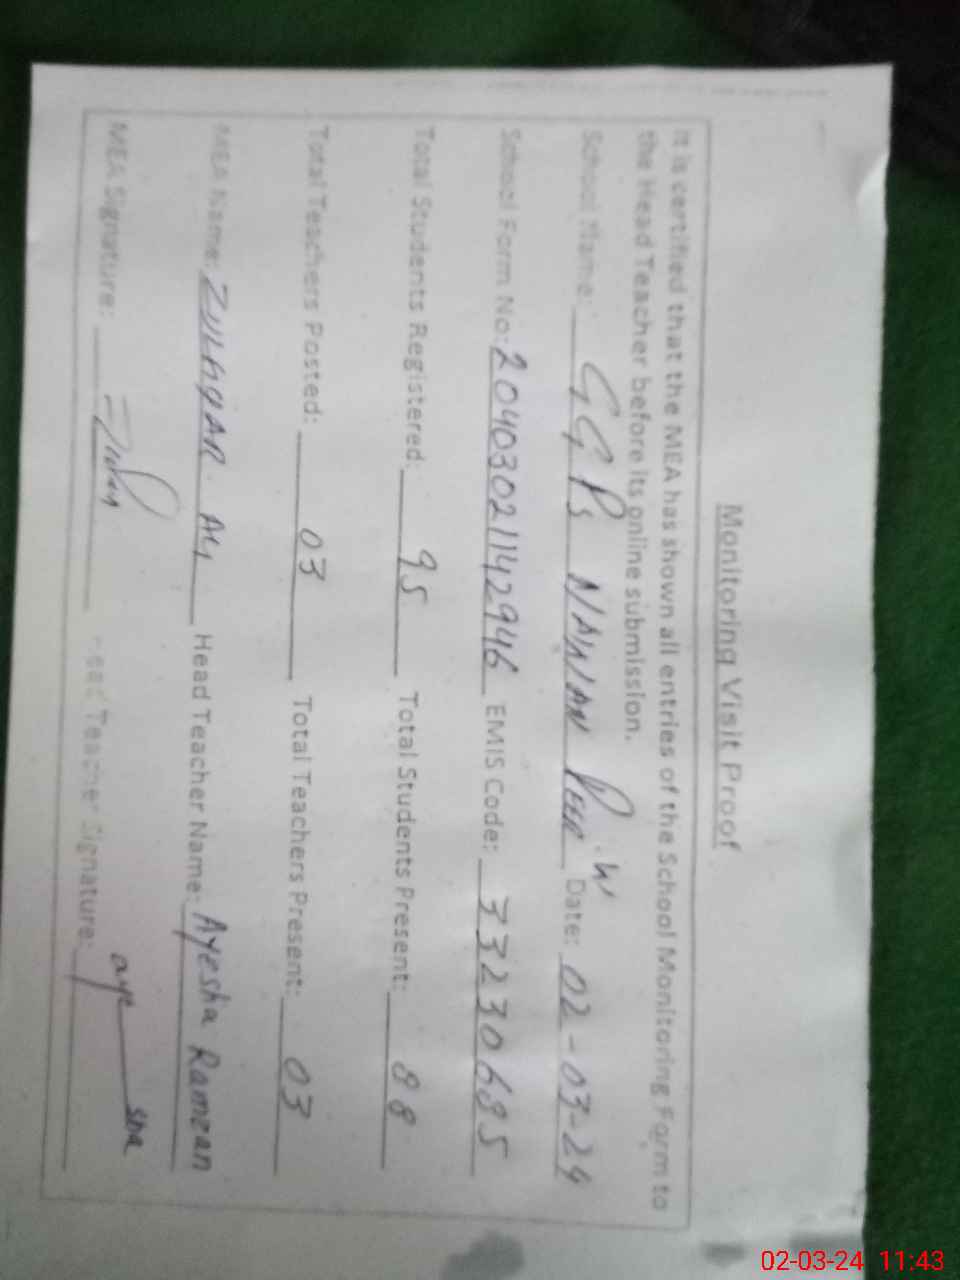 Monitoring Visit Proof
It is certified that the MEA has shown all entries of the School Monitoring Form to
the Head Teacher before its online submission.
School Name: GGPS NAWAN Date: 02-03-24
School Form No: 20403021142946 EMIS Code: 33230685
Total Students Registered: 95 Total Students Present: 88
Total Teachers Posted: 03 Total Teachers Present: 03
MEA Name: ZULFIQAR ALI Head Teacher Name: Ayesha Ramzan
MEA Signature: Head Teacher Signature: aye sha
02-03-24 11:43